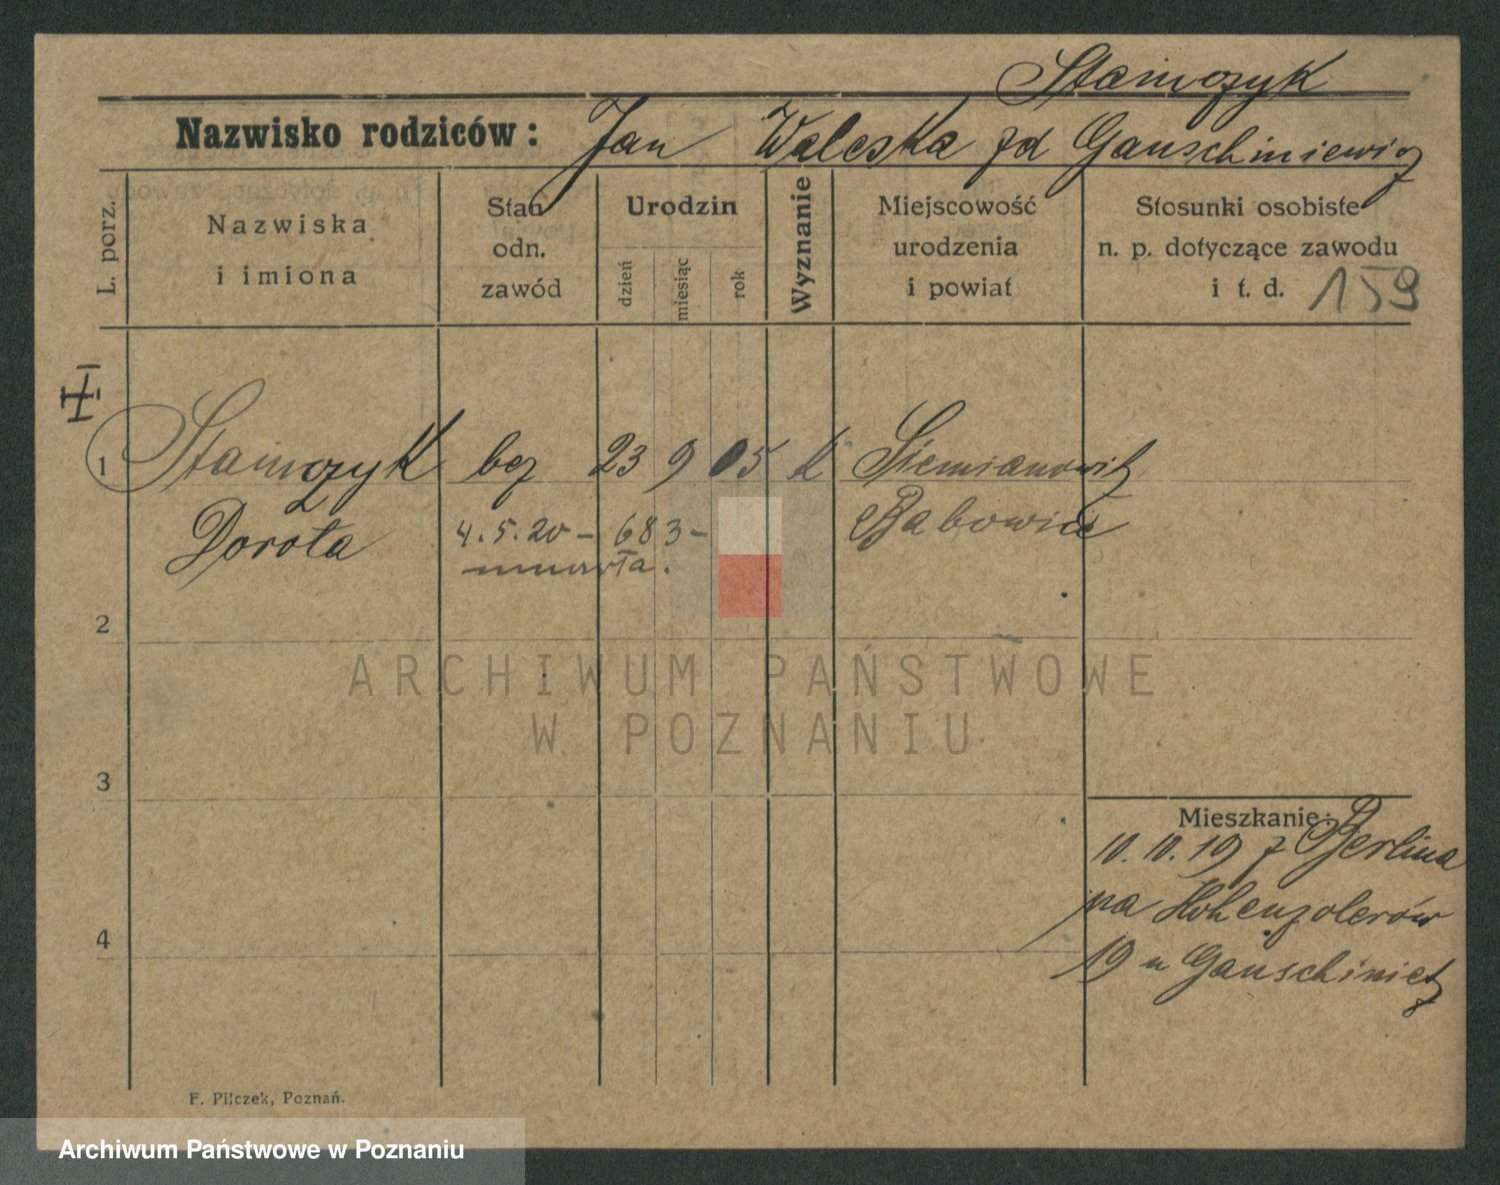 Stamczyk
Nazwisko rodziców: Jan Waleska zd Gauschiniewicz
L. porz.
Nazwiska
i imiona
Stan
odn.
zawód
Urodzin
dzień
miesiąc
rok
Wyznanie
Miejscowość
urodzenia
i powiat
Stosunki osobiste
n. p. dotyczące zawodu
i t. d. 159
1 Stamczyk bez 23 9 05 k Siemianowitz
Dorota 4.5.20 – 683 – Babowice
umarła.
2
3
4
ARCHIWUM PAŃSTWOWE
W POZNANIU
Mieszkanie:
10.10.19 z Berlina
na Hohenzolerów
19 u Gauschinietz
F. Pilczek, Poznań.
Archiwum Państwowe w Poznaniu